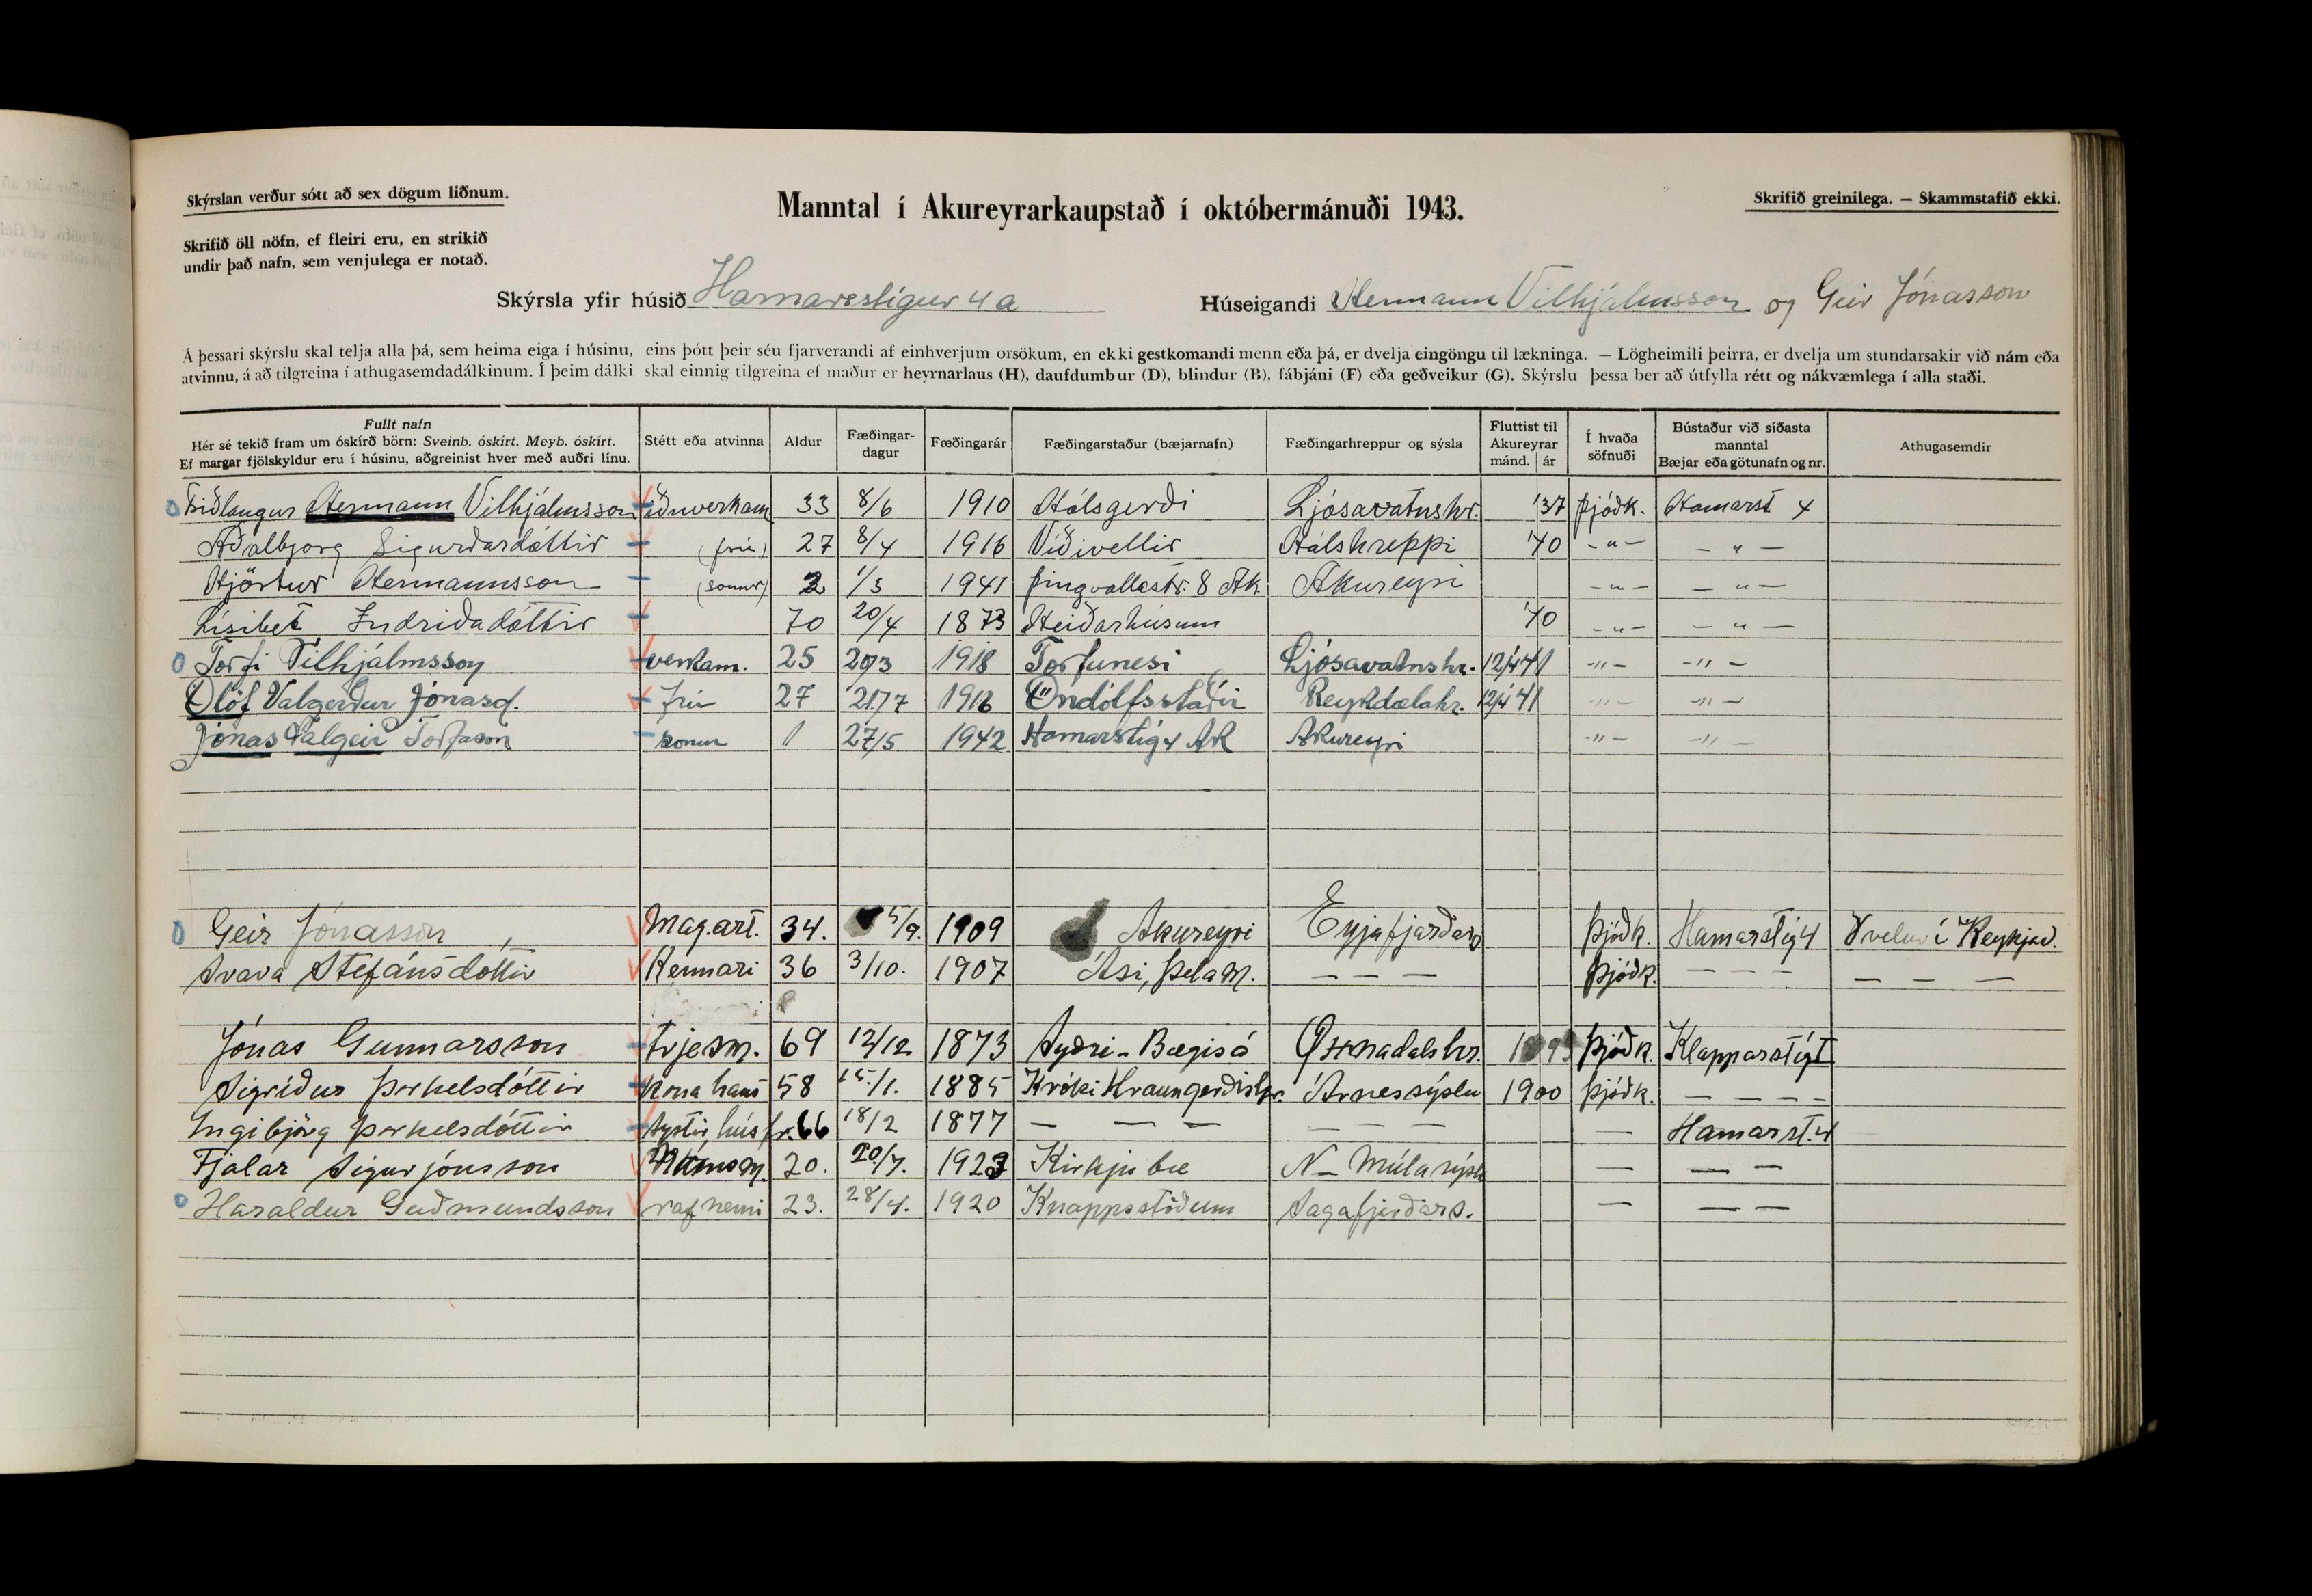 Skýrslan verður sótt að sex dögum liðnum.
Manntal í Akureyrarkaupstað í októbermánuði 1943.
Skrifið greinilega. — Skammstafið ekki.
Skrifið öll nöfn, ef fleiri eru, en strikið
undir það nafn, sem venjulega er notað.
Skýrsla yfir húsið Hamarsstígur 4 a Húseigandi Hermann Vilhjálmsson og Geir Jónasson
Á þessari skýrslu skal telja alla þá, sem heima eiga í húsinu, eins þótt þeir séu fjarverandi af einhverjum orsökum, en ekki gestkomandi menn eða þá, er dvelja eingöngu til lækninga. — Lögheimili þeirra, er dvelja um stundarsakir við nám eða
atvinnu, á að tilgreina í athugasemdadálkinum. Í þeim dálki skal einnig tilgreina ef maður er heyrnarlaus (H), daufdumbur (D), blindur (B), fábjáni (F) eða geðveikur (G). Skýrslu þessa ber að útfylla rétt og nákvæmlega í alla staði.
Fullt nafn
Hér sé tekið fram um óskírð börn: Sveinb. óskírt. Meyb. óskírt.
Ef margar fjölskyldur eru í húsinu, aðgreinist hver með auðri línu.
Stétt eða atvinna
Aldur
Fæðingar-
dagur
Fæðingarár
Fæðingarstaður (bæjarnafn)
Fæðingarhreppur og sýsla
Fluttist til
Akureyrar
mánd. ár
Í hvaða
söfnuði
Bústaður við síðasta
manntal
Bæjar eða götunafn og nr.
Athugasemdir
Friðlaugur Hermann Vilhjálmsson iðnverkam 33 8/6 1910 Hálsgerði Ljósavatnshr. '37 Þjóðk. Hamarst 4
Aðalbjorg Sigurðardóttir (frú) 27 8/4 1916 Víðivellir Hálshreppi '40 - " - - " -
Hjörtur Hermannsson (sonur) 2 1/3 1941 Þingvallastr. 8 Ak. Akureyri - " - - " -
Lísibet Indriðadóttir 70 20/4 1873 Heiðarhúsum '40 - " - - " -
Torfi Vilhjálmsson verkam. 25 20/3 1918 Torfunesi Ljósavatnshr. 12/4 41 - " - - " -
Ólöf Valgerður Jónasd. Frú 27 21/7 1916 Öndólfsstaðir Reykdælahr. 12/4 41 - " - - " -
Jónas Valgeir Torfason sonur 1 27/5 1942 Hamarstíg 4 AK Akureyri - " - - " -
Geir Jónasson Mag. art. 34. 5/9. 1909 Akureyri Eyjafjarðar Þjóðk. Hamarstíg 4 Dvelur í Reykjav.
Svava Stefánsdóttir Kennari 36 3/10. 1907 Ási, Þelam. — — — Þjóðk. — — — — — —
Jónas Gunnarsson trjesm. 69 12/12 1873 Syðri-Bægisá Öxnadalshr. Þjóðk. Klapparstíg 1
Sigríður Þorkelsdóttir kona hans 58 15./1. 1885 Króki Hraungerðishr. Árnessýslu 1900 Þjóðk. — — — —
Ingibjörg Þorkelsdóttir systir húsfr. 66 18/2 1877 — — — — — — — Hamarst. 4
Fjalar Sigurjónsson Námsm. 20. 20/7. 1923 Kirkjubæ N-Múlasýslu — — —
Haraldur Guðmundsson rafnemi 23. 28/4. 1920 Knappsstöðum Sagafjirðars. — — —